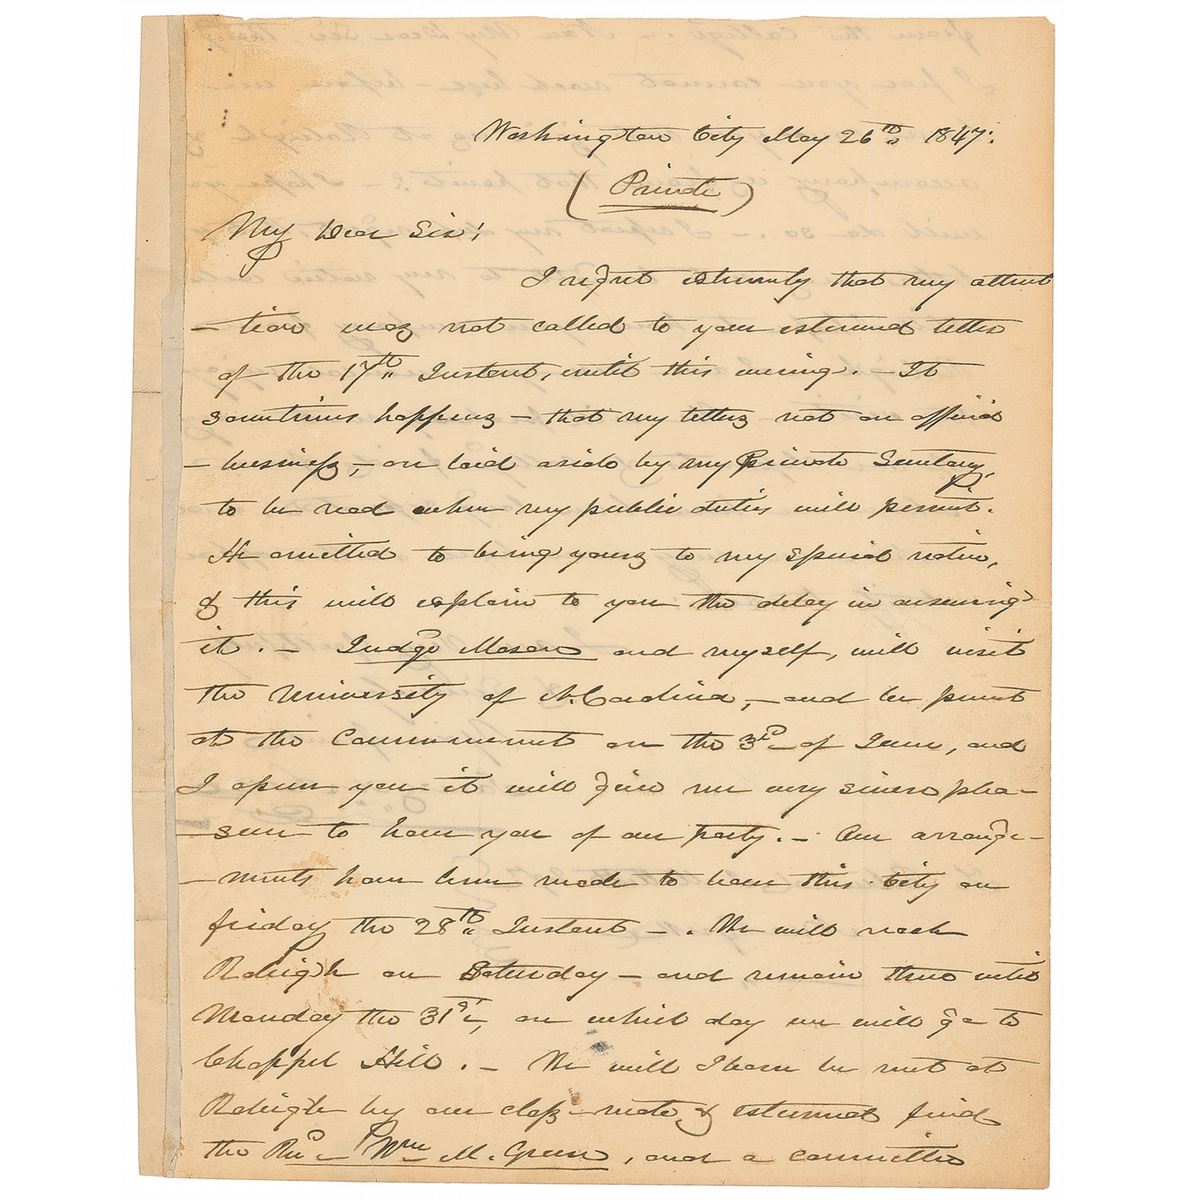 Washington City May 26th 1847.
(Private)
My Dear Sir!
I regret extremely that my atten
-tion was not called to your esteemed letter
of the 17th Instant, until this evening. - It
sometimes happens - that my letters not on official
- business, - are laid aside by my private Secretary,
to be read when my public duties will permit.
He omitted to bring yours to my special notice,
& this will explain to you the delay in answering
it. - Judge Mason and myself, will visit
the University of N. Carolina, - and be present
at the Commencement on the 3rd of June, and
I assure you it will give me very sincere plea-
- sure to have you of our party. - Our arrange-
- ments have been made to leave this City on
friday the 28th Instant - . We will reach
Raleigh on Saturday - and remain there until
Monday the 31st, on which day we will go to
Chappel Hill. - We will I learn be met at
Raleigh by our class-mate, & esteemed friend
the Revd Wm M. Green, and a committee